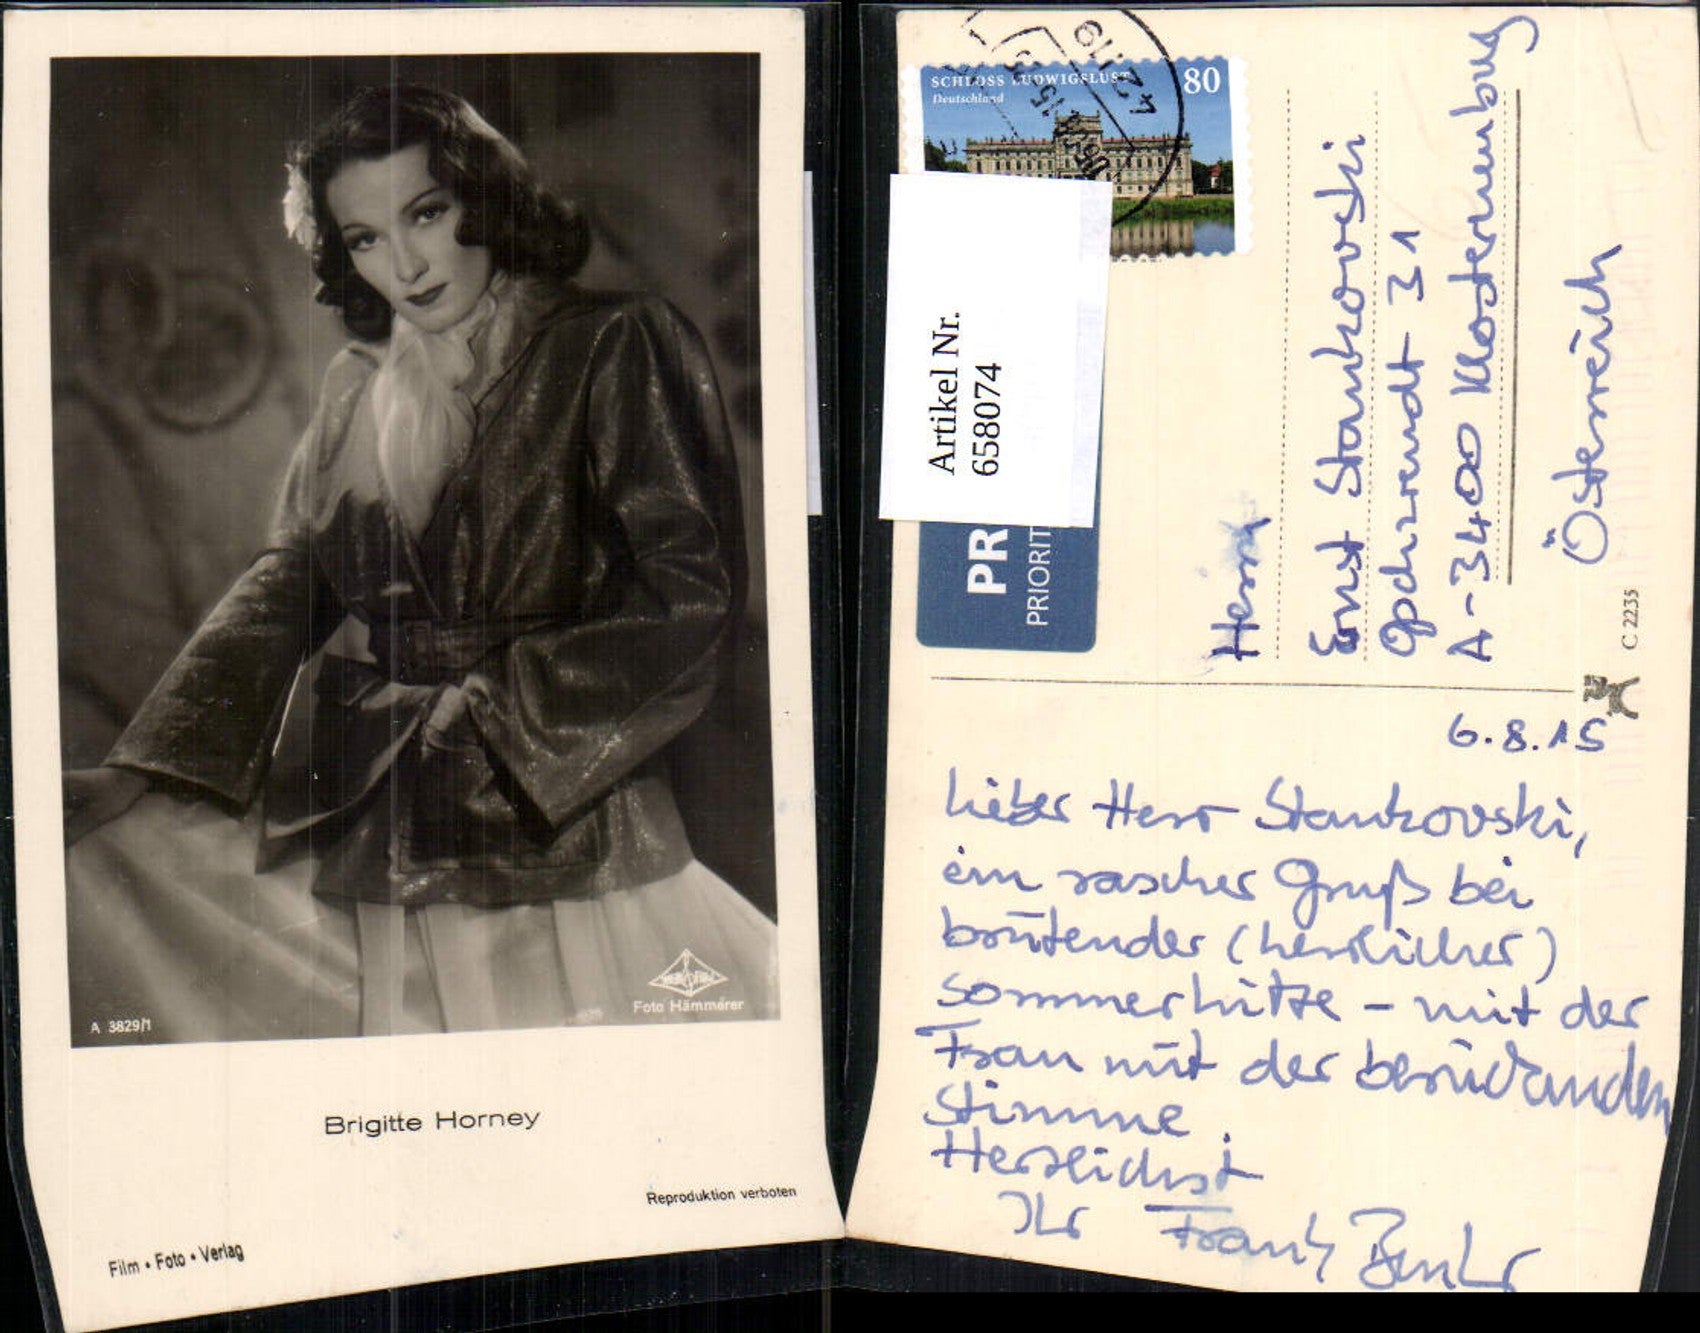 A 3829/1
Foto Hämmerer
Brigitte Horney
Reproduktion verboten
Film • Foto • Verlag
SCHLOSS LUDWIGSLUST
Deutschland
80
Artikel Nr.
658074
PR
PRIORIT
Herrn
Ernst Stankovski
31
A-3400 Klosterneuburg
Österreich
C 2235
6.8.15
Lieber Herr Stankovski,
ein rascher Gruß bei
brütender (herrlicher)
Sommerhitze – mit der
Frau mit der berückenden
Stimme.
Herzlichst
Ihr Frank